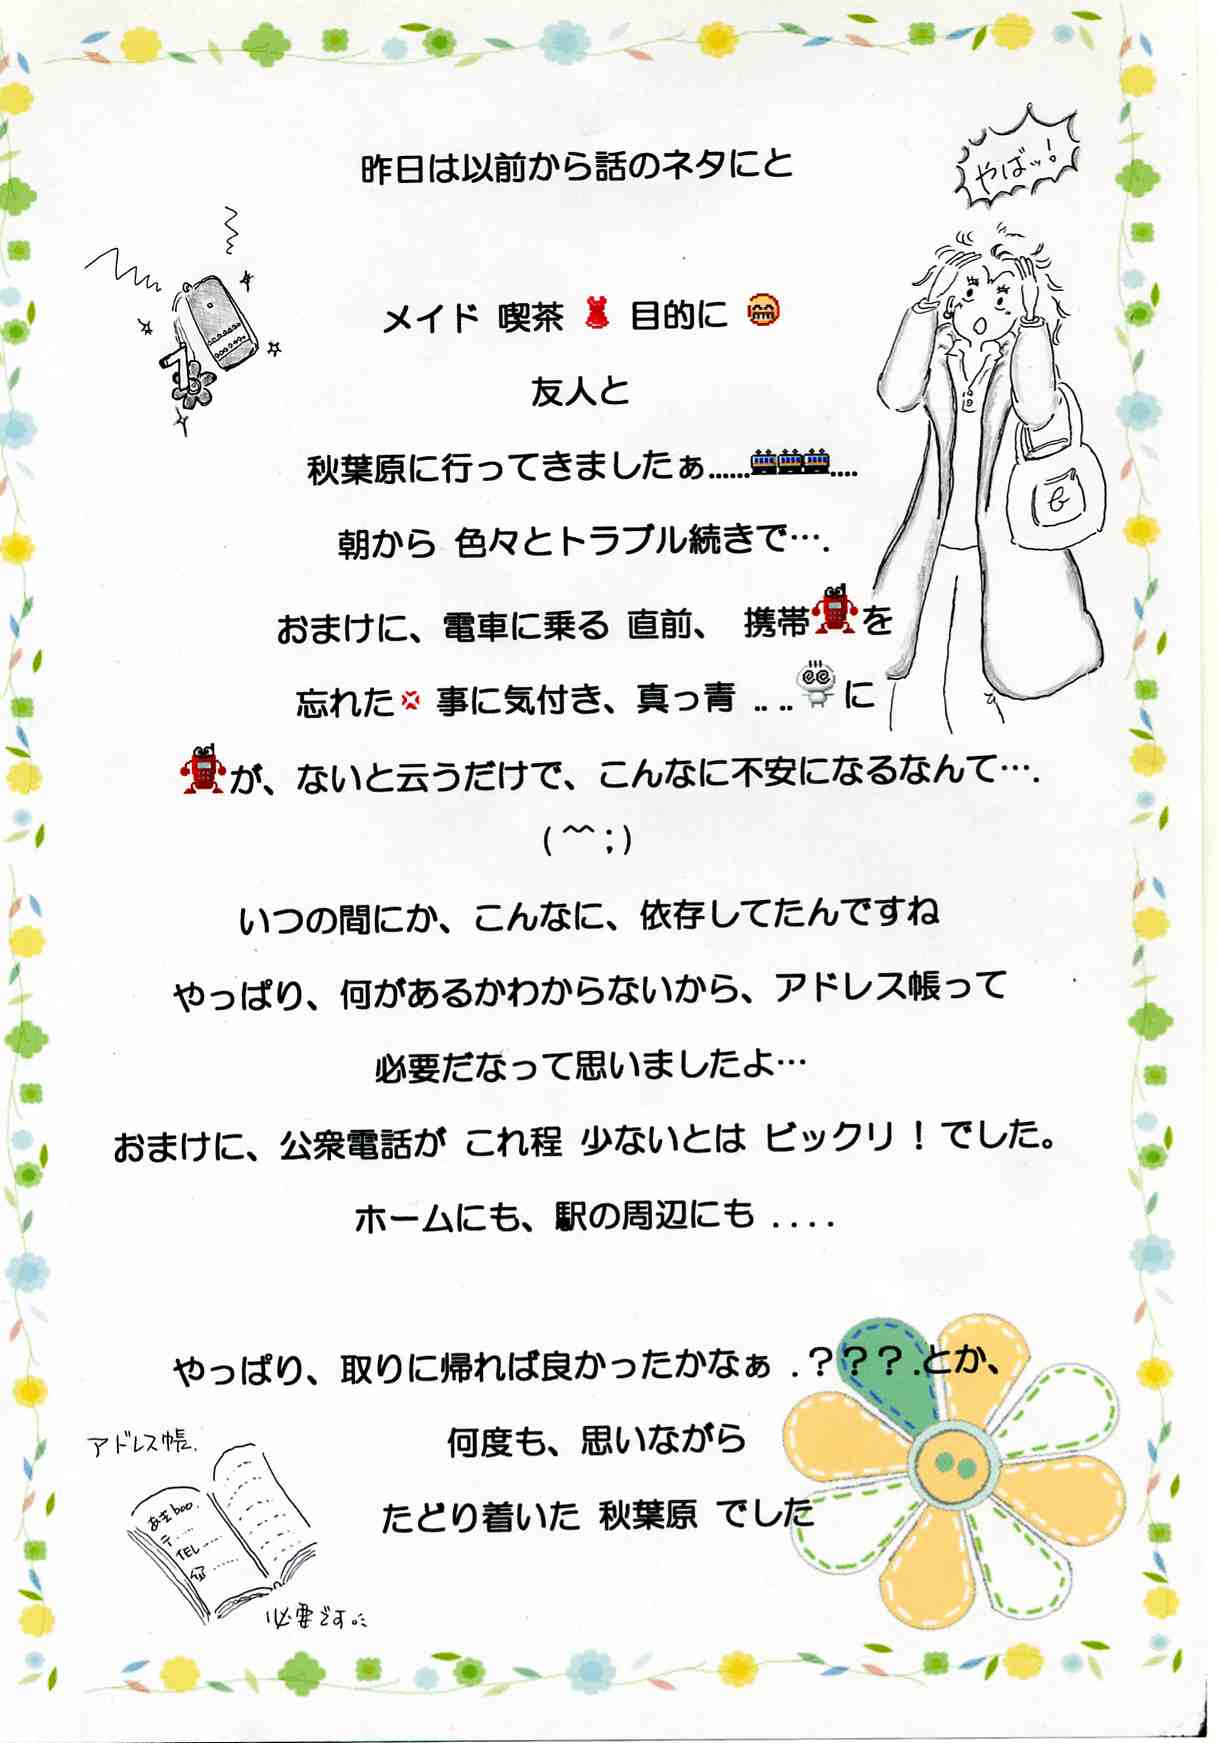 昨日は以前から話のネタにと
やばッ!
メイド 喫茶 目的に
友人と
秋葉原に行ってきましたぁ...... ....
朝から 色々とトラブル続きで….
おまけに、電車に乗る 直前、 携帯 を
忘れた 事に気付き、真っ青 .. .. に
が、ないと云うだけで、こんなに不安になるなんて….
(^^;)
いつの間にか、こんなに、依存してたんですね
やっぱり、何があるかわからないから、アドレス帳って
必要だなって思いましたよ…
おまけに、公衆電話が これ程 少ないとは ビックリ!でした。
ホームにも、駅の周辺にも ....
やっぱり、取りに帰れば良かったかなぁ .???.とか、
何度も、思いながら
たどり着いた 秋葉原 でした
アドレス帳.
あきboo.
〒……
TEL……
必要です。